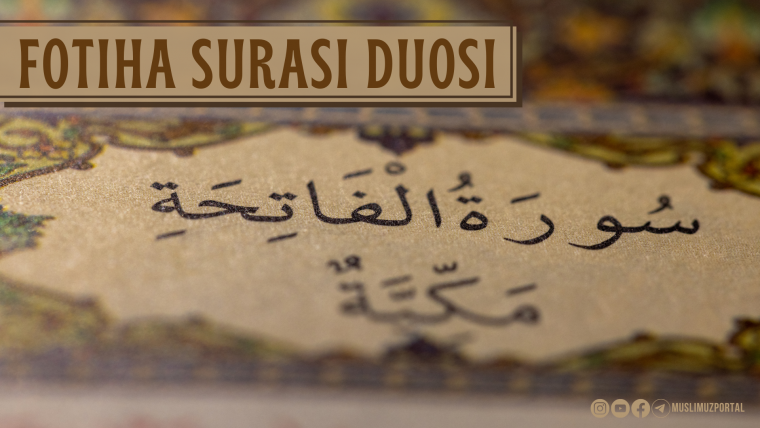 FOTIHA SURASI DUOSI
سُورَةُ الْفَاتِحَةِ
مَكِّيَّةٌ
MUSLIMUZPORTAL